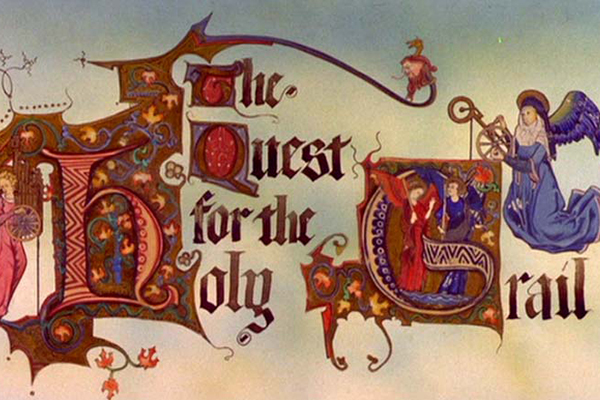 The
Quest
for the
Holy Grail